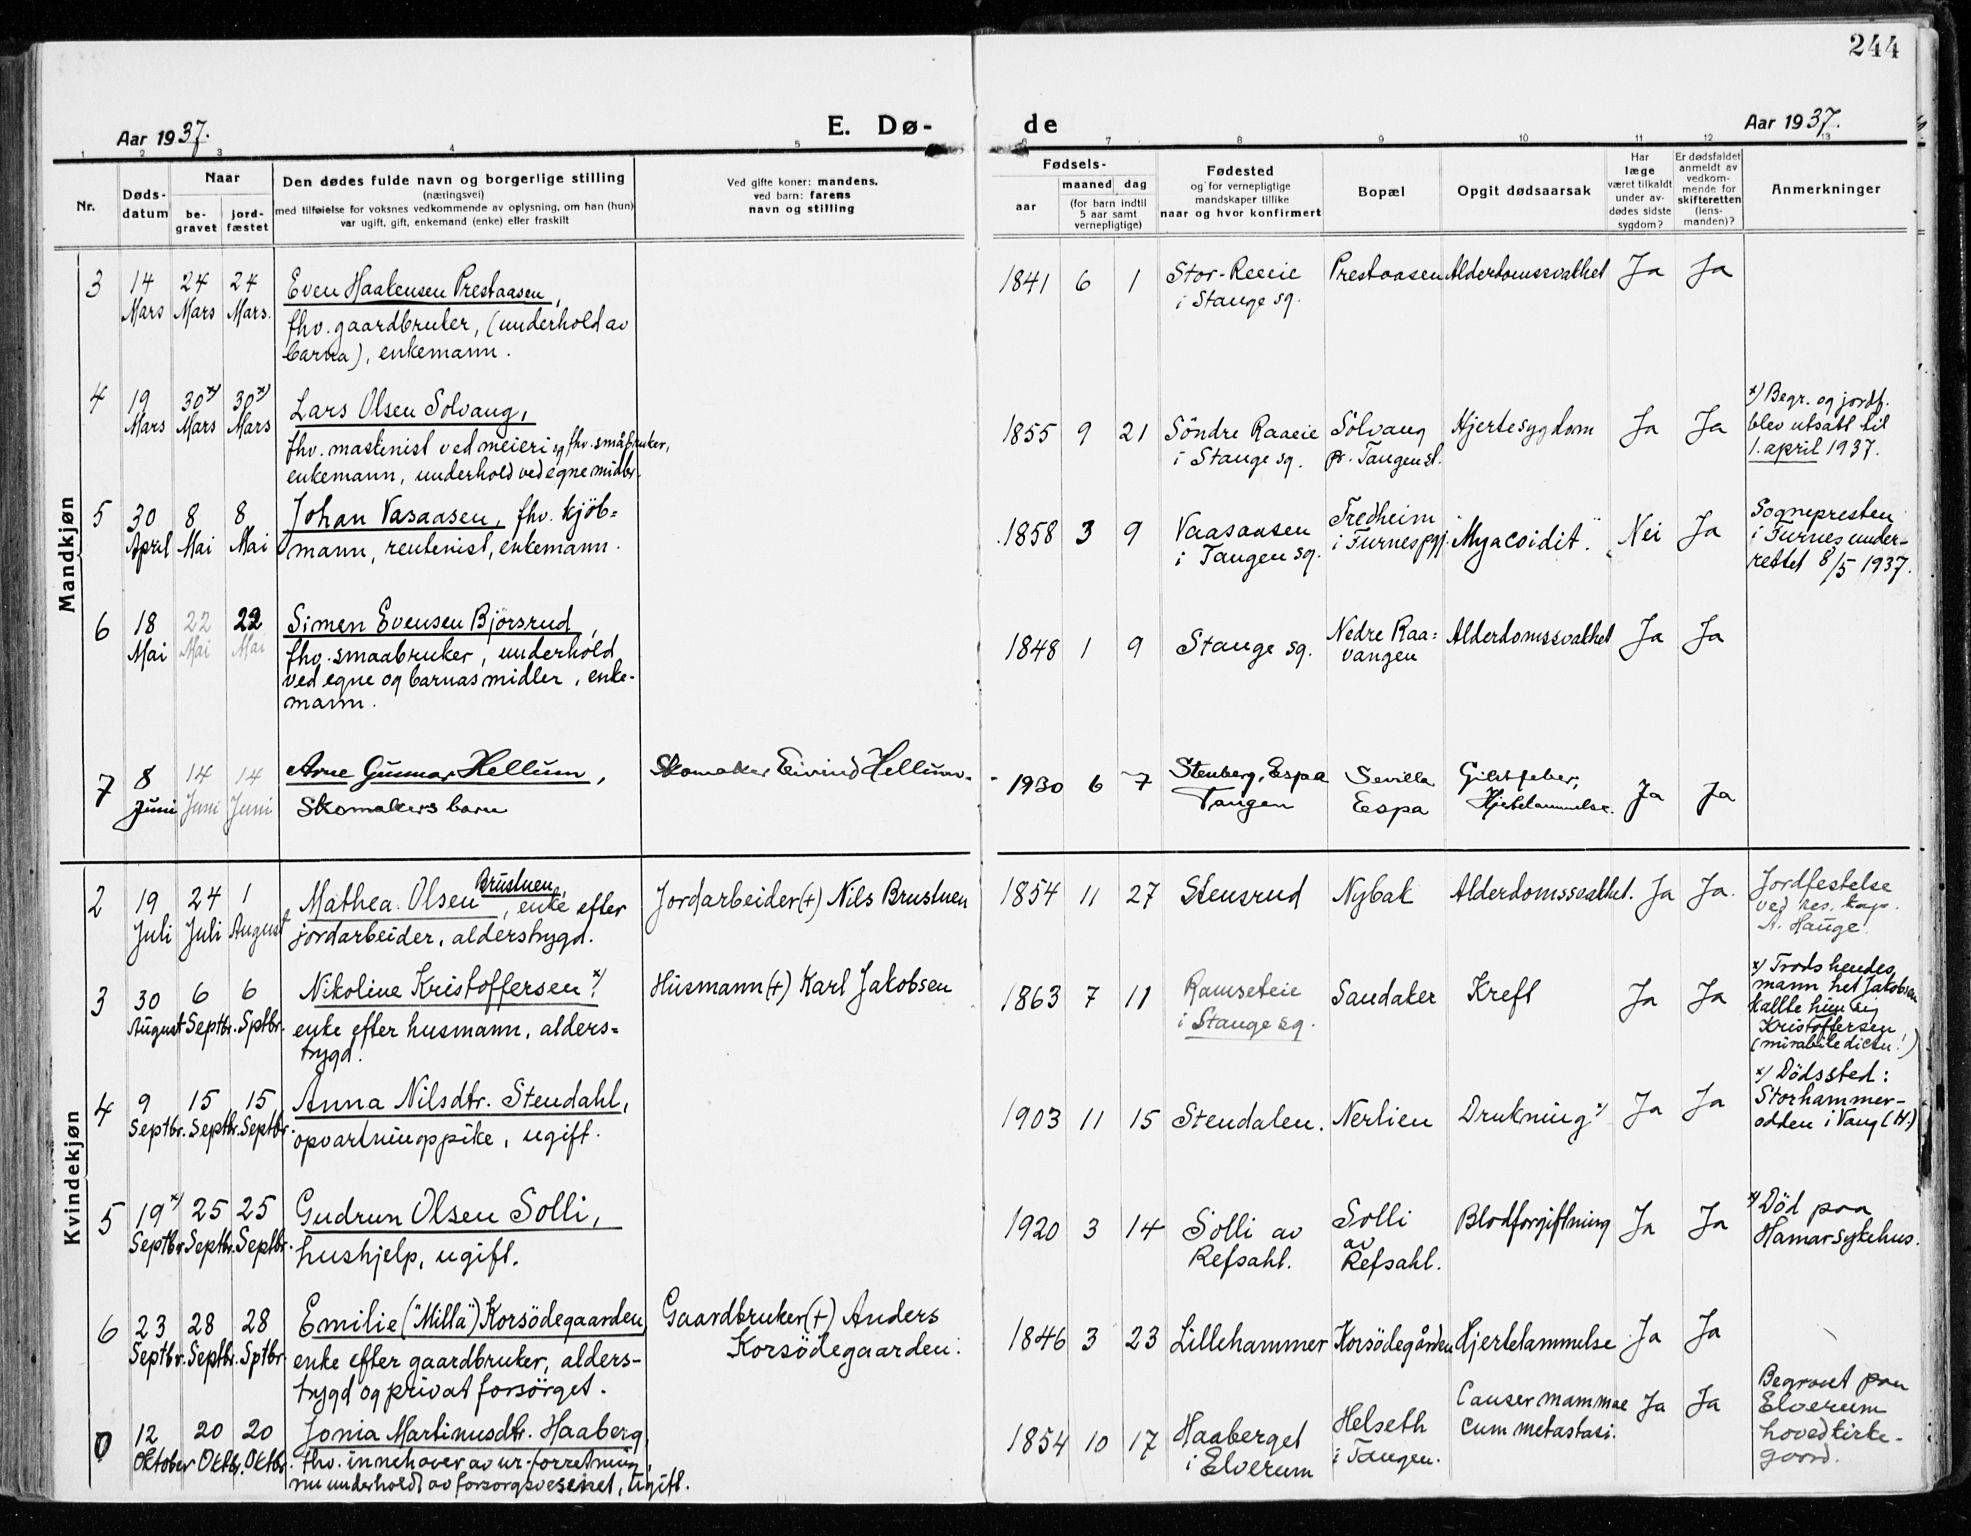 244
Aar 1937. E. Dø- de Aar 1937.
1 2 3 4 5 6 7 8 9 10 11 12 13
Nr.
Døds-
datum
Naar
be-
gravet
jord-
fæstet
Den dødes fulde navn og borgerlige stilling
(næringsvei)
med tilføielse for voksnes vedkommende av oplysning, om han (hun)
var ugift, gift, enkemand (enke) eller fraskilt
Ved gifte koner: mandens.
ved barn: farens
navn og stilling
Fødsels-
aar
maaned dag
(for barn indtil
5 aar samt
vernepligtige)
Fødested
og for vernepligtige
mandskaper tillike
naar og hvor konfirmert
Bopæl
Opgit dødsaarsak
Har
læge
været tilkaldt
under av-
dødes sidste
sygdom?
Er dødsfaldet
anmeldt av
vedkom-
mende for
skifteretten
(lens-
manden)?
Anmerkninger
Mandkjøn
3
14
Mars
24
Mars
24
Mars.
Even Haakensen Prestaasen,
fhv. gaardbruker, (underhold av
barna), enkemann.
1841 6 1
Stor-Reeeie
i Stange sg.
Prestaasen
Alderdomssvakhet
Ja
Ja
4
19
Mars
30 x)
Mars
30 x)
Mars
Lars Olsen Solvang,
fhv. maskinist ved meieri og fhv. småbruker,
enkemann, underhold ved egne midler.
1855 9 21
Söndre Raaeie
i Stange sg.
Sölvang
pr. Tangen st.
Hjertesygdom
Ja
Ja
x) Begr. og jordf.
blev utsatt til
1. april 1937.
5
30
April
8
Mai
8
Mai
Johan Vasaasen, fhv. kjöb=
mann, rentenist, enkemann.
1858 3 9
Vaasaasen
i Tangen sg.
Fredheim
i Furnes pgj.
"Myacoidit".
Nei
Ja
Sognepresten
i Furnes under-
rettet 8/5 1937.
6
18
Mai
22
Mai
22
Mai
Simen Evensen Björsrud,
fhv. smaabruker, underhold
ved egne og barnas midler, enke-
mann.
1848 1 9
Stange sg.
Nedre Raa=
vangen
Alderdomssvakhet
Ja
Ja
7
8
Juni
14
Juni
14
Juni
Arne Gunnar Hellum,
Skomakers barn
Skomaker Eivind Hellum.
1930 6 7
Stenberg, Espa
Tangen
Sevilla
Espa
Giktfeber,
Hjertelammelse.
Ja
Ja
Kvindekjøn
2
19
Juli
24
Juli
1
August
Brustuen,
Mathea Olsen, enke efter
jordarbeider, alderstrygd.
Jordarbeider (+) Nils Brustuen
1854 11 27
Stensrud
Nybak
Alderdomssvakhet.
Ja
Ja.
Jordfestelse
ved res. kap.
A. Hauge.
3
30
August
6
Septbr.
6
Sptbr.
Nikoline Kristoffersen x),
enke efter husmann, alders=
trygd.
Husmann (+) Karl Jakobsen
1863 7 11
Ramseteie
i Stange sg.
Sandaker
Kreft
Ja
Ja
x) Trods hendes
mann het Jakobsen
kallte hun sig
Kristoffersen,
(mirabile dictu!)
4
9
Septbr.
15
Septbr.
15
Septbr.
Anna Nilsdtr. Stendahl,
opvartningspike, ugift.
1903 11 15
Stendalen.
Nerlien
Drukning x)
Ja
Ja
x) Dödssted:
Storhammer-
odden i Vang (H.)
5
19 x)
Septbr.
25
Septbr.
25
Septbr.
Gudrun Olsen Solli,
hushjelp, ugift.
1920 3 14
Solli av
Refsahl.
Solli
av
Refsahl.
Blodforgiftning
Ja
Ja
x) Död paa
Hamar sykehus.
6
23
Septbr.
28
Septbr.
28
Sptbr.
Emilie ("Milla") Korsödegaarden,
enke efter gaardbruker, alders-
trygd og privat forsörget.
Gaardbruker (+) Anders
Korsödegaarden.
1846 3 23
Lillehammer
Korsödegården
Hjertelammelse
Ja
Ja
0
12
Oktober
20
Oktbr.
20
Oktbr.
Jonia Martinusdtr. Haaberg,
fhv. innehaver av ur-forretning,
nu underholdt av forsorgsvesenet, ugift.
1854 10 17
Haaberget
i Elverum
Helseth
i Tangen.
Causer mammae
cum metastasi.
Ja
Ja
Begravet paa
Elverum
hovedkirke-
gaard.